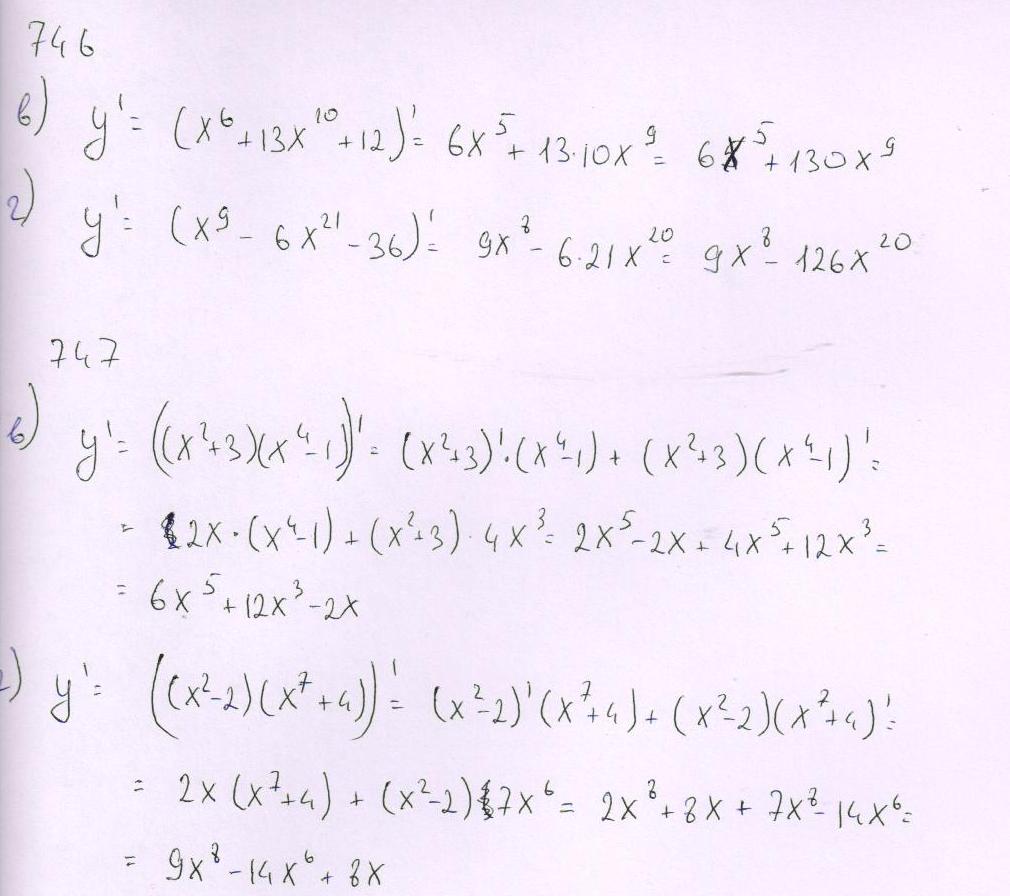 746
в) y' = (x⁶ + 13x¹⁰ + 12)' = 6x⁵ + 13·10x⁹ = 6x⁵ + 130x⁹
г) y' = (x⁹ - 6x²¹ - 36)' = 9x⁸ - 6·21x²⁰ = 9x⁸ - 126x²⁰
747
в) y' = ((x²+3)(x⁴-1))' = (x²+3)'·(x⁴-1) + (x²+3)(x⁴-1)' =
= 2x·(x⁴-1) + (x²+3)·4x³ = 2x⁵ - 2x + 4x⁵ + 12x³ =
= 6x⁵ + 12x³ - 2x
г) y' = ((x²-2)(x⁷+4))' = (x²-2)'(x⁷+4) + (x²-2)(x⁷+4)' =
= 2x(x⁷+4) + (x²-2)7x⁶ = 2x⁸ + 8x + 7x⁸ - 14x⁶ =
= 9x⁸ - 14x⁶ + 8x